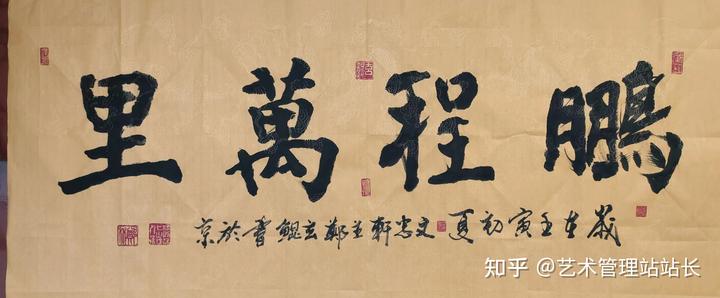 鵬程萬里
歲在壬寅初夏文忠軒主鄭玄鯤書於京
知乎 @艺术管理站站长